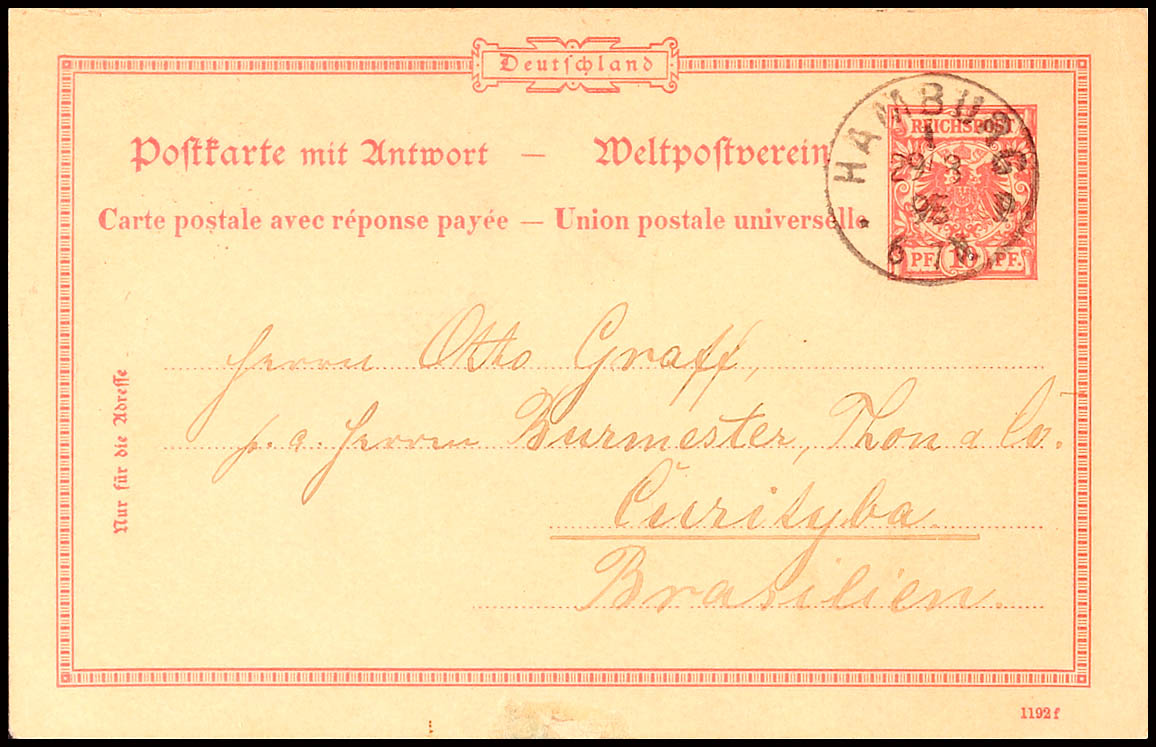 Deutschland
Postkarte mit Antwort — Weltpostverein
Carte postale avec réponse payée — Union postale universelle
HAMBURG
1
REICHSPOST
PF. 10 PF.
Herrn Otto Graff,
p. a. Herren Burmester, Thon & Co.
Curityba
Brasilien.
Nur für die Adresse
1192 f